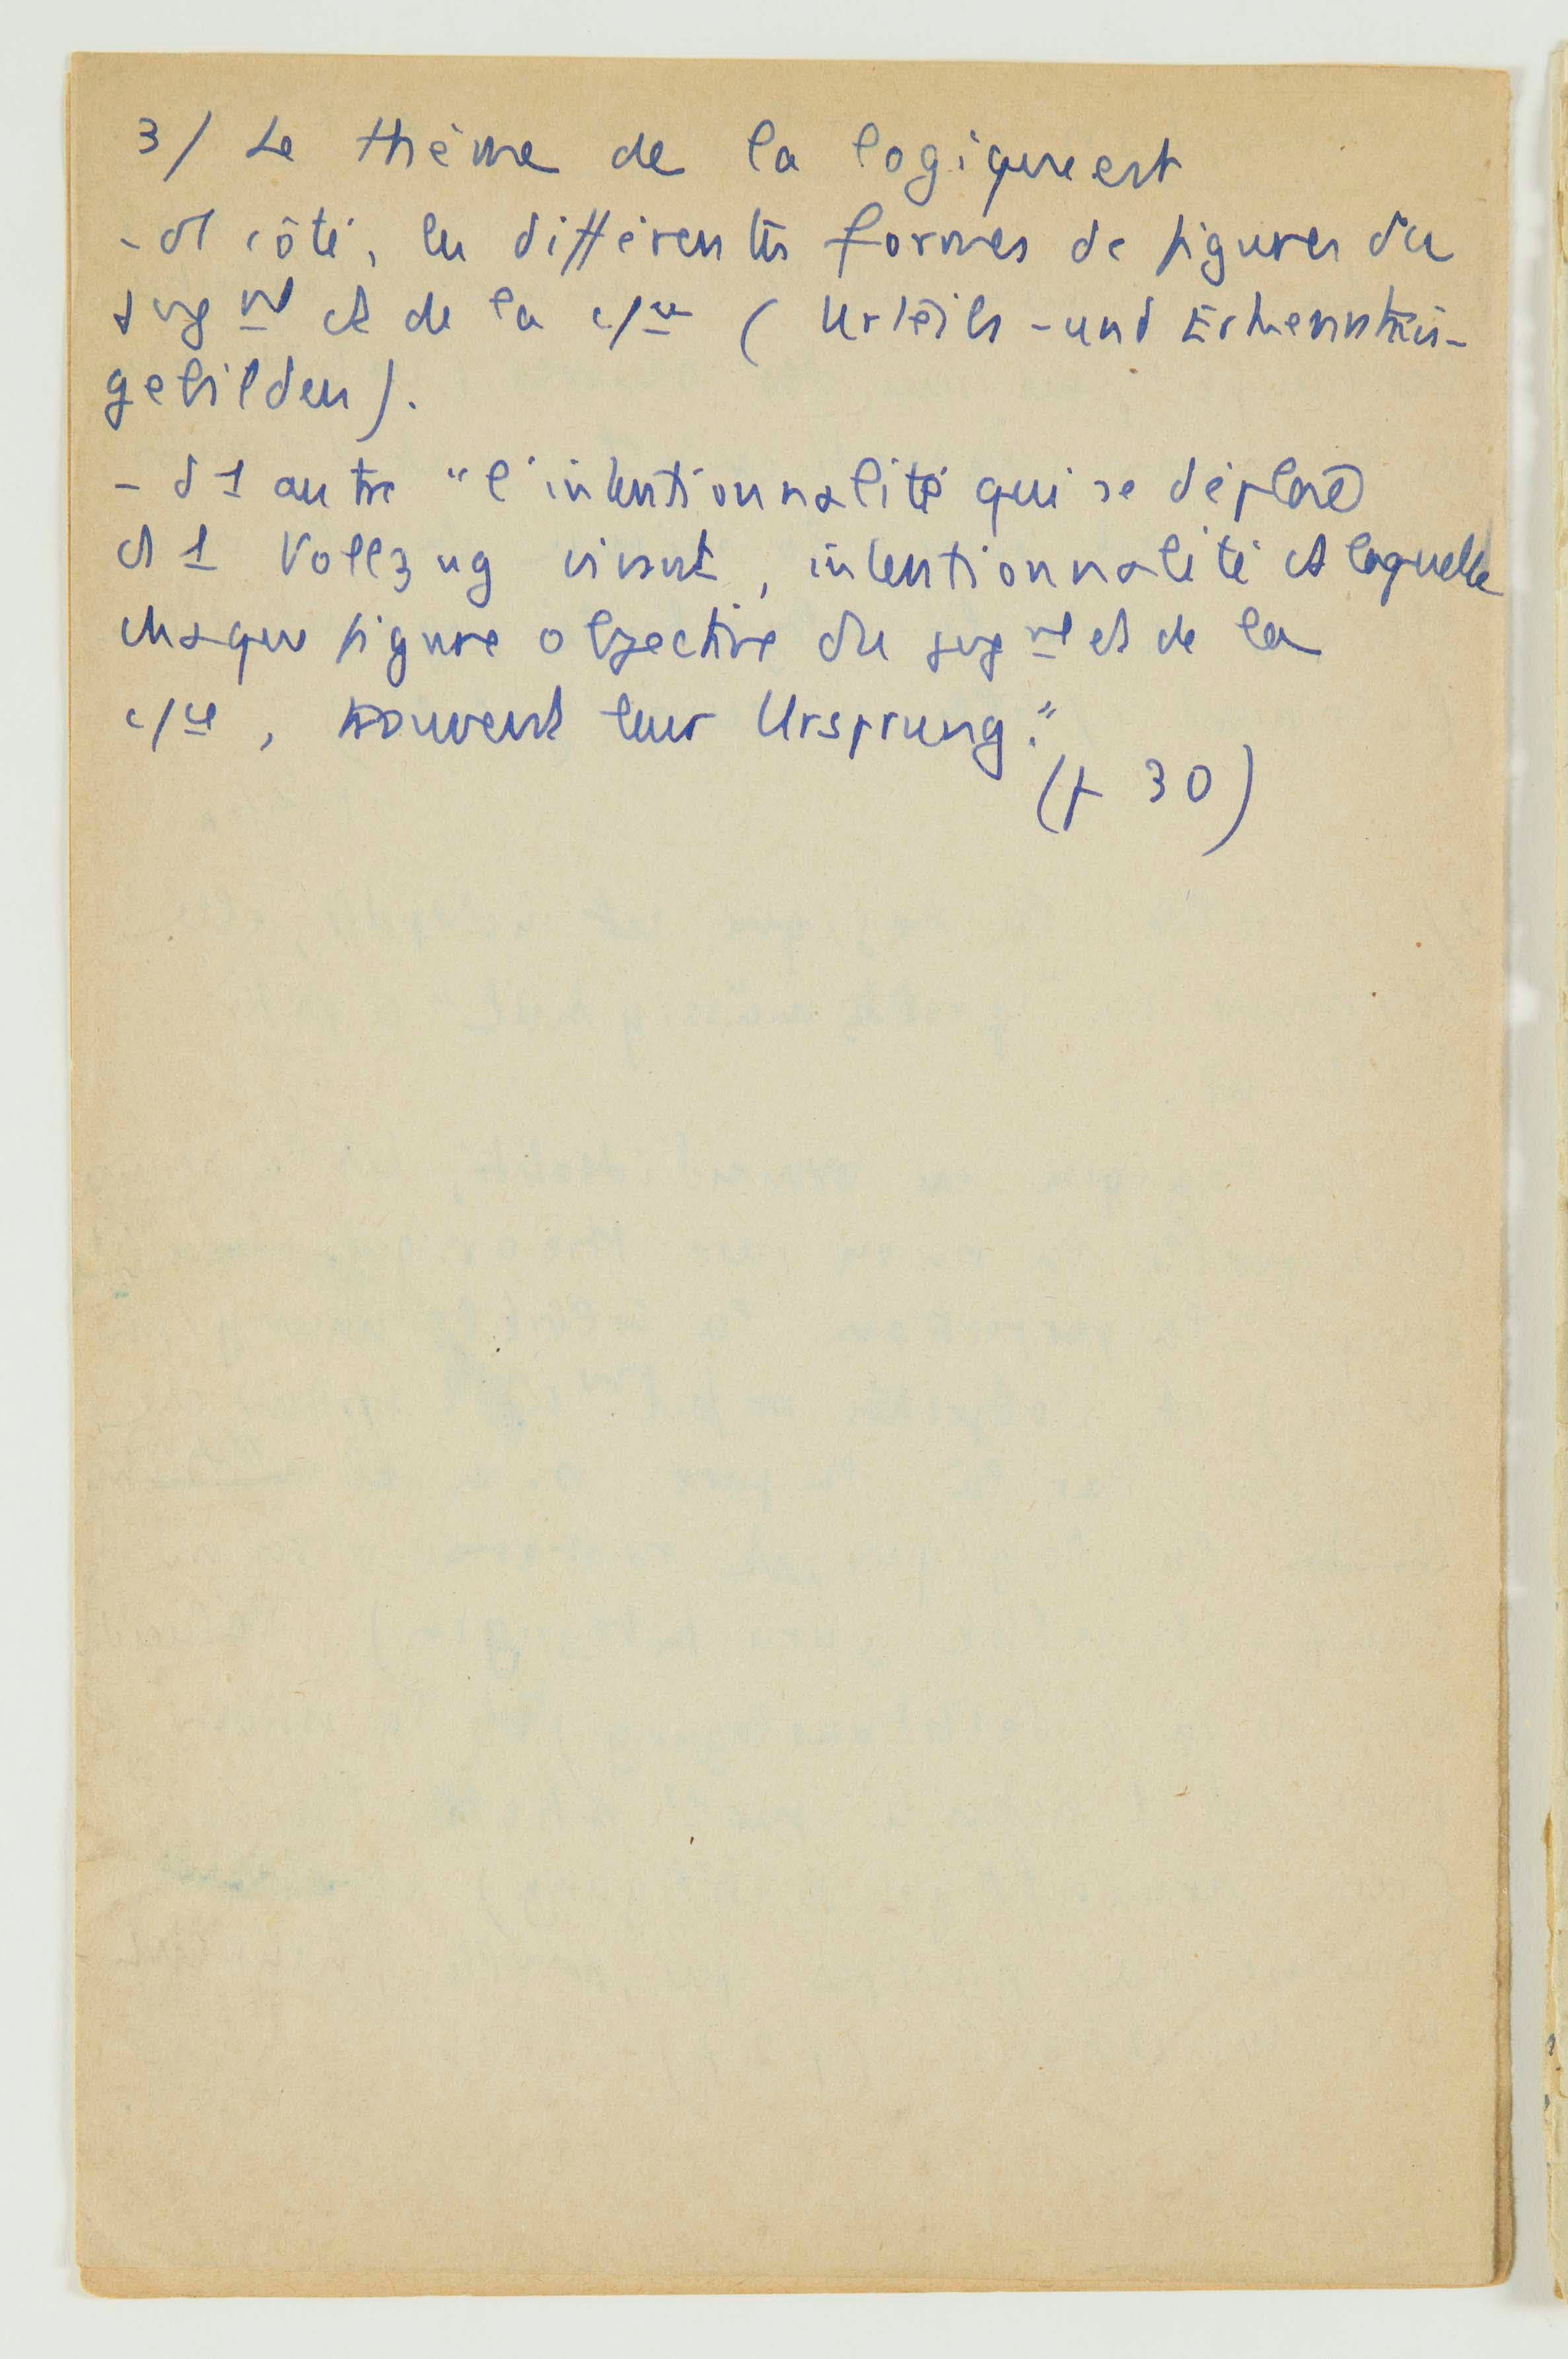 3/ Le thème de la logique est
- d1 côté, les différentes formes de figures du
jugmt et de la c/ce (Urteils - und Erkenntnis-
gebilden).
- d1 autre "l'intentionnalité qui se déplace
ds 1 Vollzug vivant, intentionnalité ds laquelle
chaque figure objective du jugmt et de la
c/ce, trouvent leur Ursprung."
(p 30)